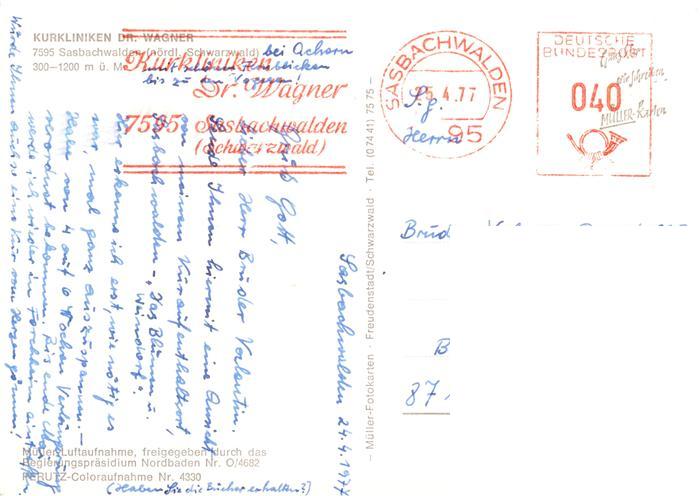 KURKLINIKEN DR. WAGNER
7595 Sasbachwalden (nördl. Schwarzwald) bei Achern
300-1200 m ü. M.
bis zu den Vogesen!
Kurkliniken
Dr. Wagner
7595 Sasbachwalden
(Schwarzwald)
SASBACHWALDEN
25.4.77
95
DEUTSCHE
BUNDESPOST
040
MÜLLER-Karten
S. g.
Herrn
Brud
B
87-
Sasbachwalden 24.4.1977
Grüß Gott,
lieber Herr Bruder Valentin.
Sende Ihnen hiermit eine Ansicht
von meinem Kuraufenthaltsort,
Sasbachwalden - "Das Blumen u.
Weindorf".
Hier erkenne ich erst, wie nötig es
war, mal ganz auszuspannen.
Habe von 4 auf 6 Wochen Verlängerung
verordnet bekommen. Bis ende Mai
werde ich wieder in Forchheim eintreffen.
Würde Ihnen auch so eine Kur vom Herzen gönnen,
(Haben Sie die Bücher erhalten?)
Müller-Luftaufnahme, freigegeben durch das
Regierungspräsidium Nordbaden Nr. O/4682
PERUTZ-Coloraufnahme Nr. 4330
— Müller-Fotokarten · Freudenstadt/Schwarzwald · Tel. (07441) 7575 —